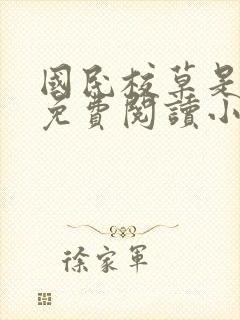 國民校草是
免費閱讀小
徐家軍